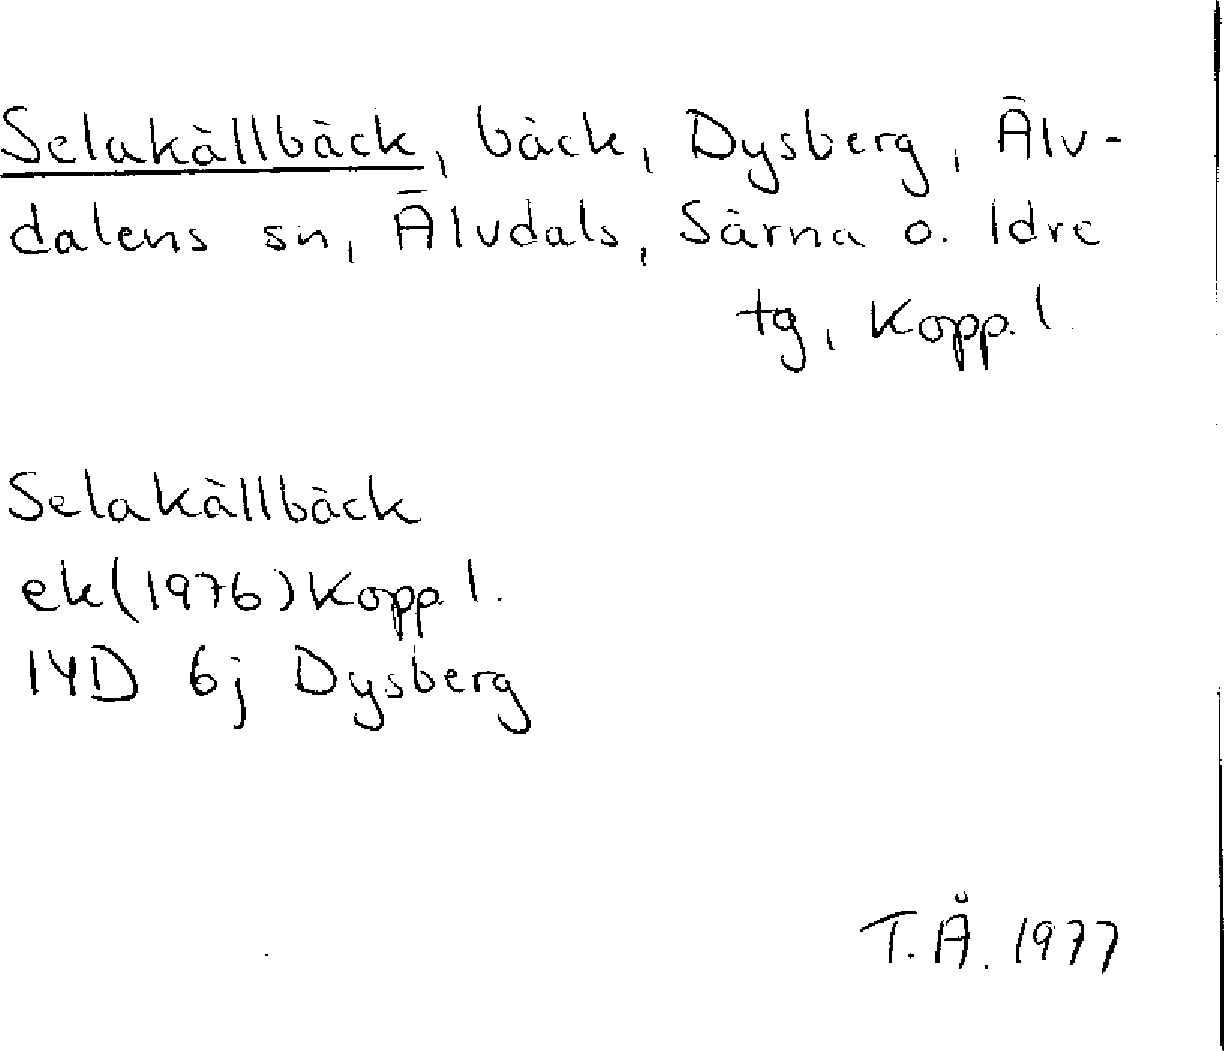 Selakällbäck, bäck, Dysberg, Älv-
dalens sn, Älvdals, Särna o. Idre
tg, Kopp. l.
Selakällbäck
ek(1976)Kopp l.
14D 6j Dysberg
T.Å. 1977